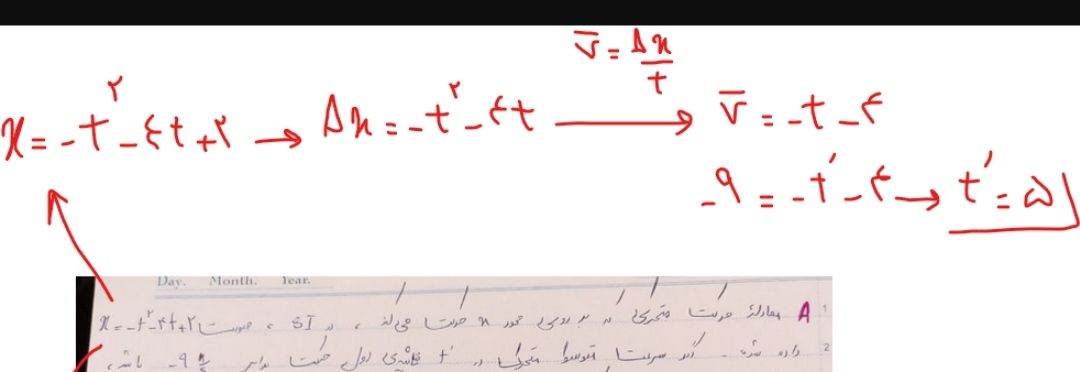 v̄ = Δx/t
x = -t² - ۴t + ۲ → Δx = -t² - ۴t → v̄ = -t - ۴
-۹ = -t' - ۴ → t' = ۵
Day. Month. Year.
A معادلهٔ حرکت متحرکی که بر روی محور x حرکت می‌کند، در SI، بصورت x = -t² - ۴t + ۲
داده شده. اگر سرعت متوسط متحرک در t' ثانیه‌ی اول حرکت برابر -۹ m/s باشد،